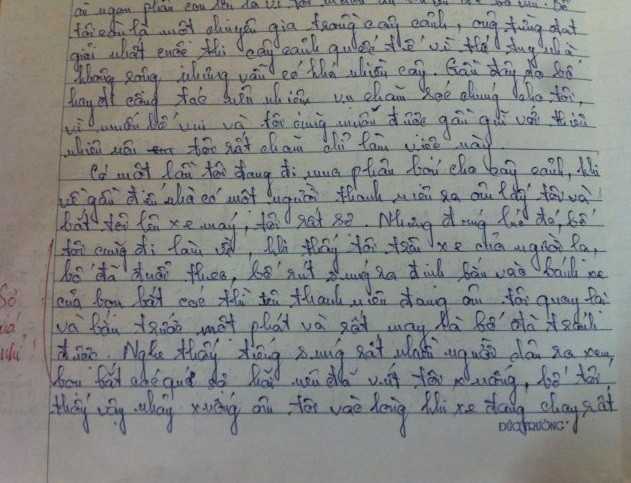 tôi còn là một chuyên gia trong cây cảnh, ông từng đạt
giải nhất cuộc thi cây cảnh quốc tế vì thế tuy nhà
không rộng nhưng vẫn có khá nhiều cây. Gần đây do bố
hay đi công tác nên nhiệm vụ chăm sóc chúng cho tôi,
vì muốn bố vui và tôi cũng muốn được gần gũi với thiên
nhiên nên tôi rất chăm chỉ làm việc này.
Có một lần tôi đang đi mua phân bón cho cây cảnh, khi
về gần đến nhà có một người thanh niên ra ôm lấy tôi và
bắt tôi lên xe máy, tôi rất sợ. Nhưng đúng lúc đó, bố
tôi cũng đi làm về, khi thấy tôi trên xe của người lạ,
bố đã đuổi theo, bố rút súng ra định bắn vào bánh xe
của bọn bắt cóc thì tên thanh niên đang ôm tôi quay lại
và bắn trước một phát và rất may là bố đã tránh
được. Nghe thấy tiếng súng rất nhiều người dân ra xem,
bọn bắt cóc quá sợ hãi nên đã vứt tôi xuống, bố tôi
thấy vậy nhảy xuống ôm tôi vào lòng khi xe đang chạy rất
Sợ
quá
như